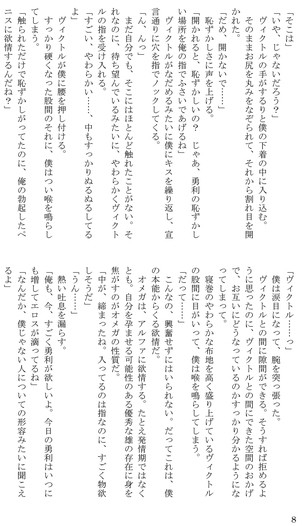 「そこは」
「いや、じゃないだろう？」
ヴィクトルの手がするりと僕の下着の中に入り込む。
そのままお尻を丸みをなぞられて、それから割れ目を開
かれた。
「だめ、開かないで……」
恥ずかしさに声を上げる。
「開かれると、恥ずかしいの？　じゃあ、勇利の恥ずかし
い場所を俺の指でふさいであげるね」
ヴィクトルがなだめるみたいに僕にキスを繰り返し、宣
言通りに穴を指でノックしてくる。
「ん、んっ」
まだ自分でも、そこにはほとんど触れたことがない。そ
れなのに、待ち望んでいるみたいに、やわらかくヴィクト
ルの指を受け入れる。
「すごい、やわらかい……、中もすっかりぬるぬるしてる
ね」
ヴィクトルが僕に腰を押し付ける。
すっかり硬くなった股間のそれに、僕はつい喉を鳴らし
てしまう。
「触られただけで恥ずかしがってたのに、俺の勃起したペ
ニスに欲情するんだね？」
「ヴィクトル……っ」
僕は涙目になって、腕を突っ張った。
ヴィクトルとの間に隙間ができる。そうすれば拒めるよ
うに思ったのに、ヴィクトルとの間にできた空間のおかげ
で、お互いにどうなっているのかすっかり分かるようにな
ってしまって。
寝巻のやわらかな布地を高く盛り上げているヴィクトル
の股間に目がいって、僕は喉を鳴らしてしまう。
「だって……」
こんなの、興奮せずにはいられない。だってこれは、僕
の本能からくる欲情だ。
オメガは、アルファに欲情する。たとえ発情期ではなく
とも、自分を孕ませる可能性のある優秀な雄の存在に身を
焦がすのがオメガの性質だ。
「中が、締まったね。入ってるのは指なのに、すごく物欲
しそうだ」
「うん……」
熱い吐息を漏らす。
「俺も、今、すごく勇利が欲しいよ。今日の勇利はいつに
も増してエロスが滴ってるね」
「なんだか、僕じゃない人についての形容みたいに聞こえ
るよ」
8